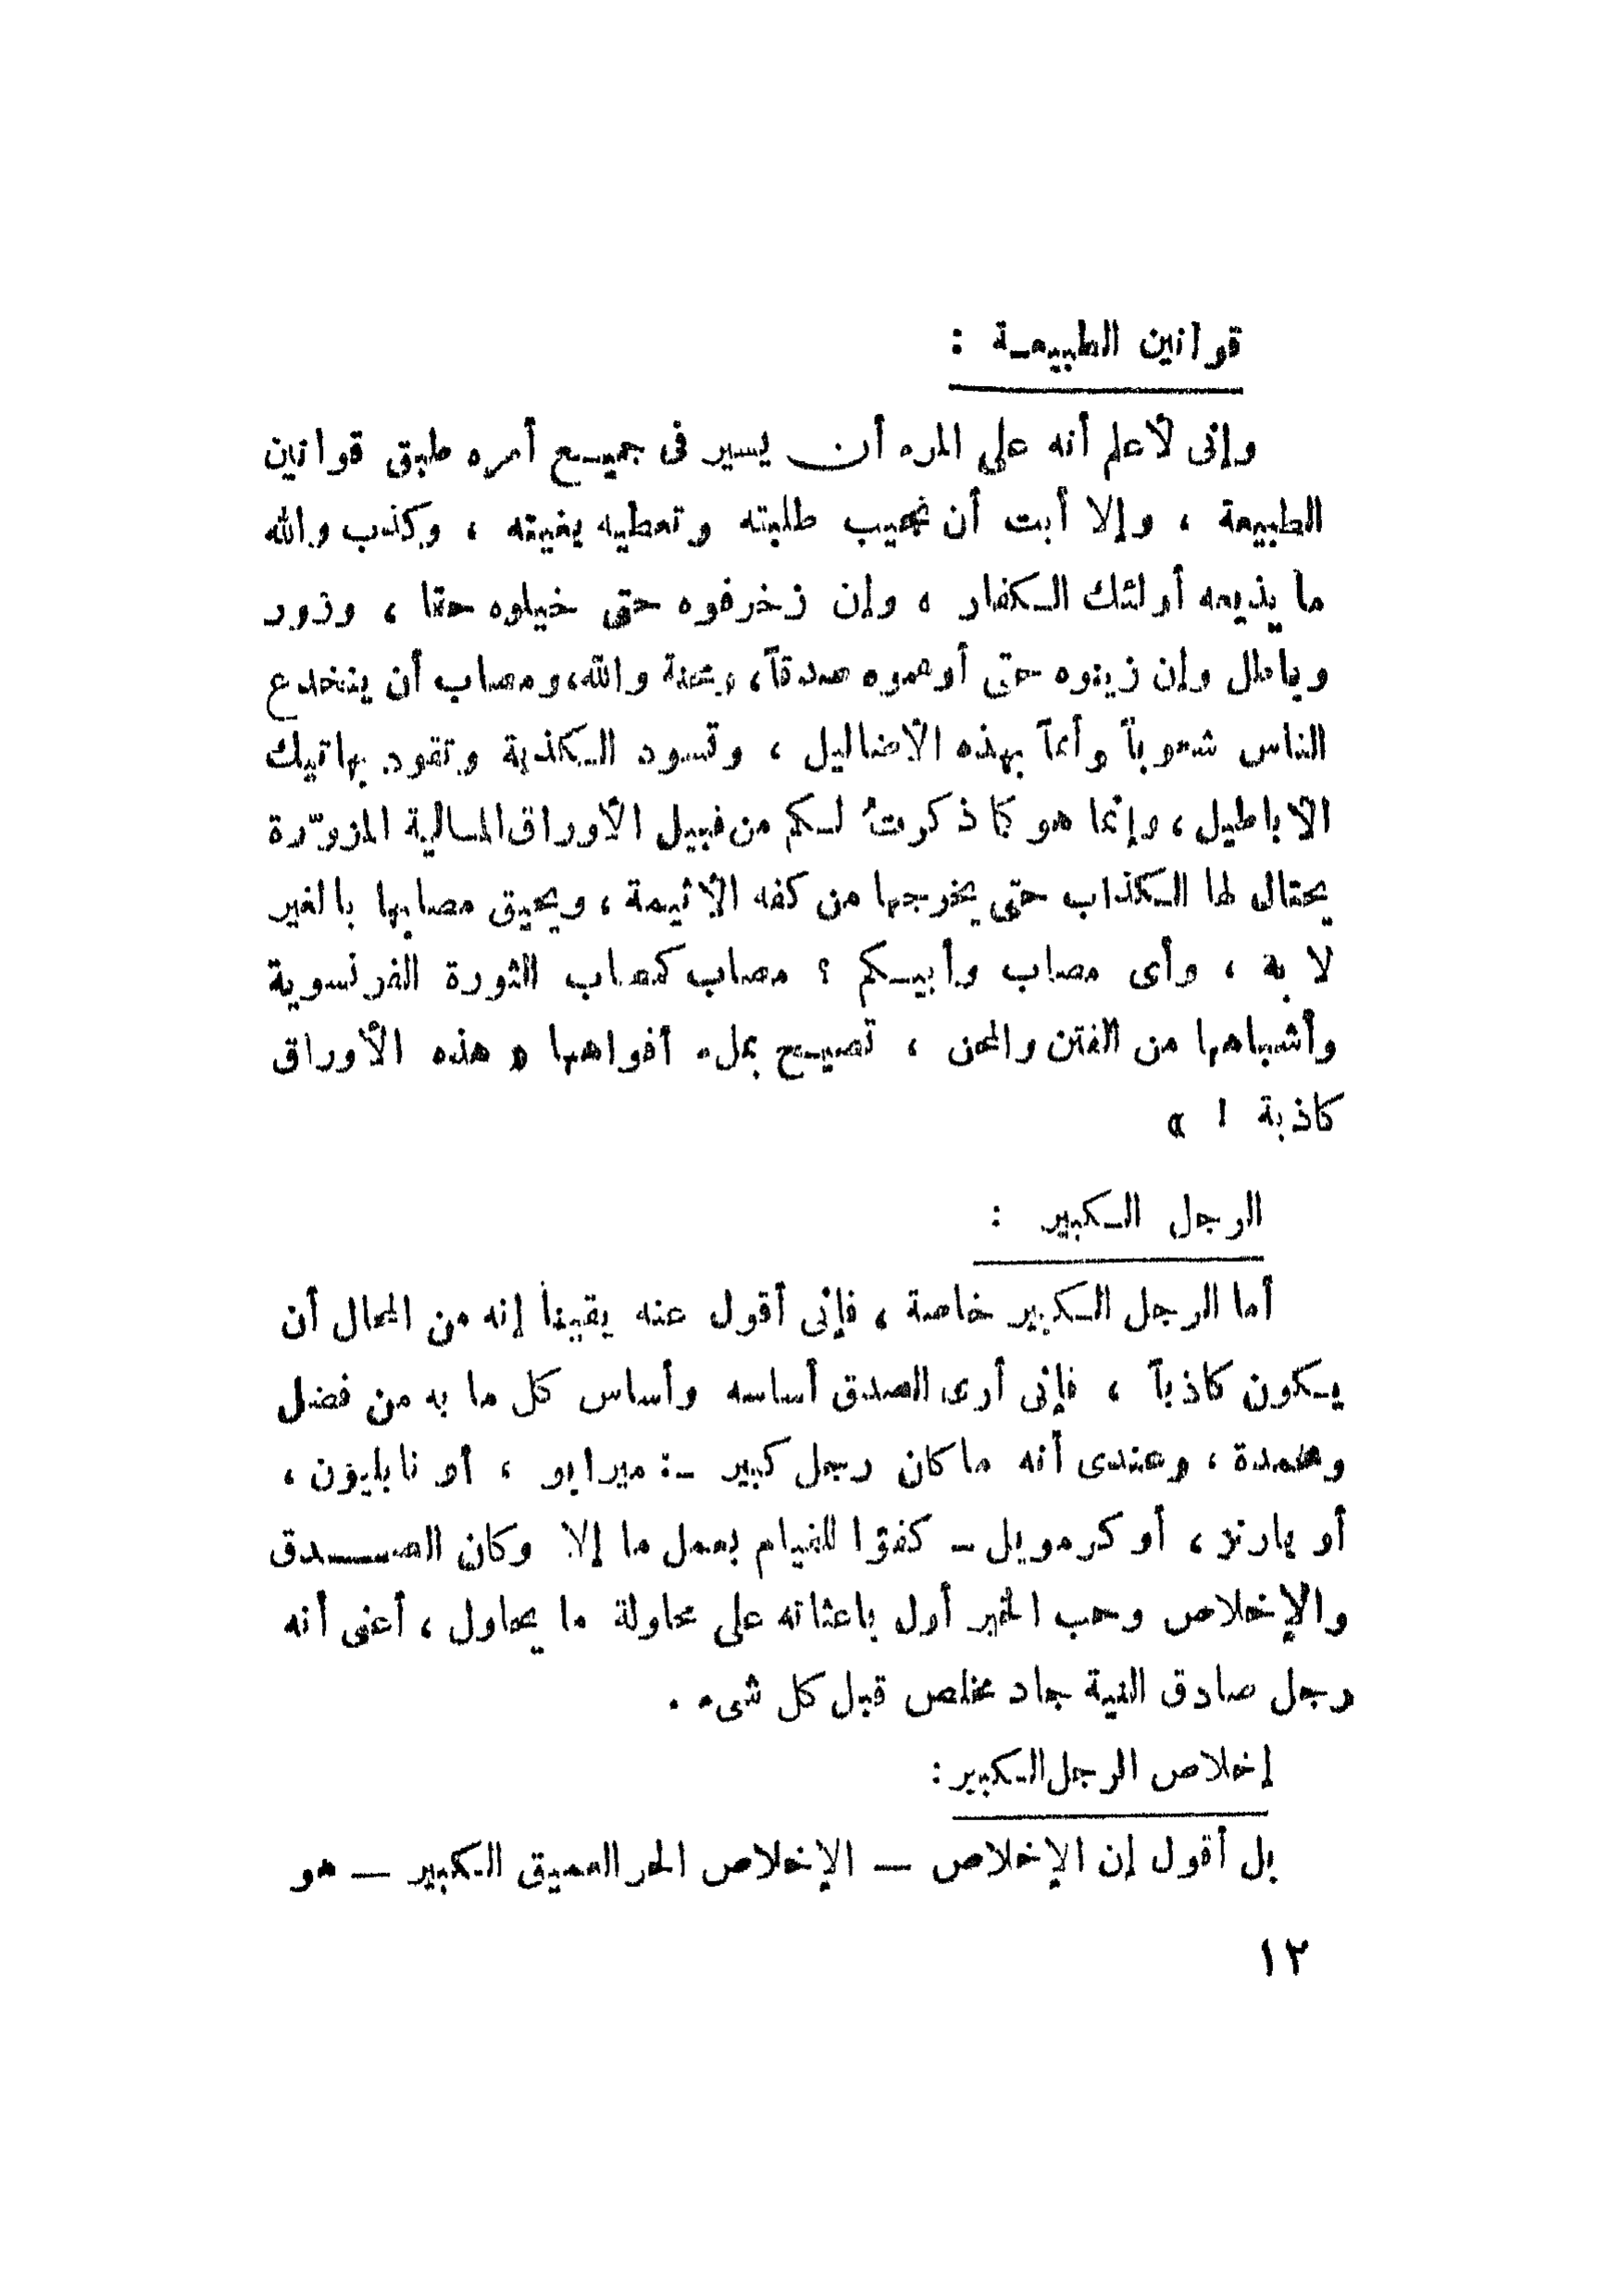 قوانين الطبيعة :
وإنى لأعلم أنه على المرء أن يسير فى جميع أمره طبق قوانين
الطبيعة ، وإلا أبت أن تجيب طلبته وتعطيه بغيته ، وكذب والله
ما يذيعه أولئك الكفار ، وإن زخرفوه حتى خيلوه حقا ، وزور
وباطل وإن زينوه حتى أوهموه صدقاً، ومحنة والله، ومصاب أن ينخدع
الناس شعوباً وأمماً بهذه الأضاليل ، وتسود الكذبة وتقود بهاتيك
الأباطيل ، وإنما هو كما ذكرتُ لكم من قبيل الأوراق المالية المزوّرة
يحتال لها الكذاب حتى يخرجها من كفه الأثيمة ، ويحيق مصابها بالغير
لا به ، وأى مصاب وأبيكم ؟ مصاب كمصاب الثورة الفرنسوية
وأشباهها من الفتن والمحن ، تصيح بملء أفواهها « هذه الأوراق
كاذبة ! »
الرجل الكبير :
أما الرجل الكبير خاصة ، فإنى أقول عنه يقيناً إنه من المحال أن
يكون كاذباً ، فإنى أرى الصدق أساسه وأساس كل ما به من فضل
ومحمدة ، وعندى أنه ما كان رجل كبير -: ميرابو ، أو نابليون ،
أو بارنز ، أو كرمويل - كفؤا للقيام بعمل ما إلا وكان الصدق
والإخلاص وحب الخير أول باعثاته على محاولة ما يحاول ، أعنى أنه
رجل صادق النية جاد مخلص قبل كل شىء .
إخلاص الرجل الكبير :
بل أقول إن الإخلاص — الإخلاص الحر العميق الكبير — هو
١٢